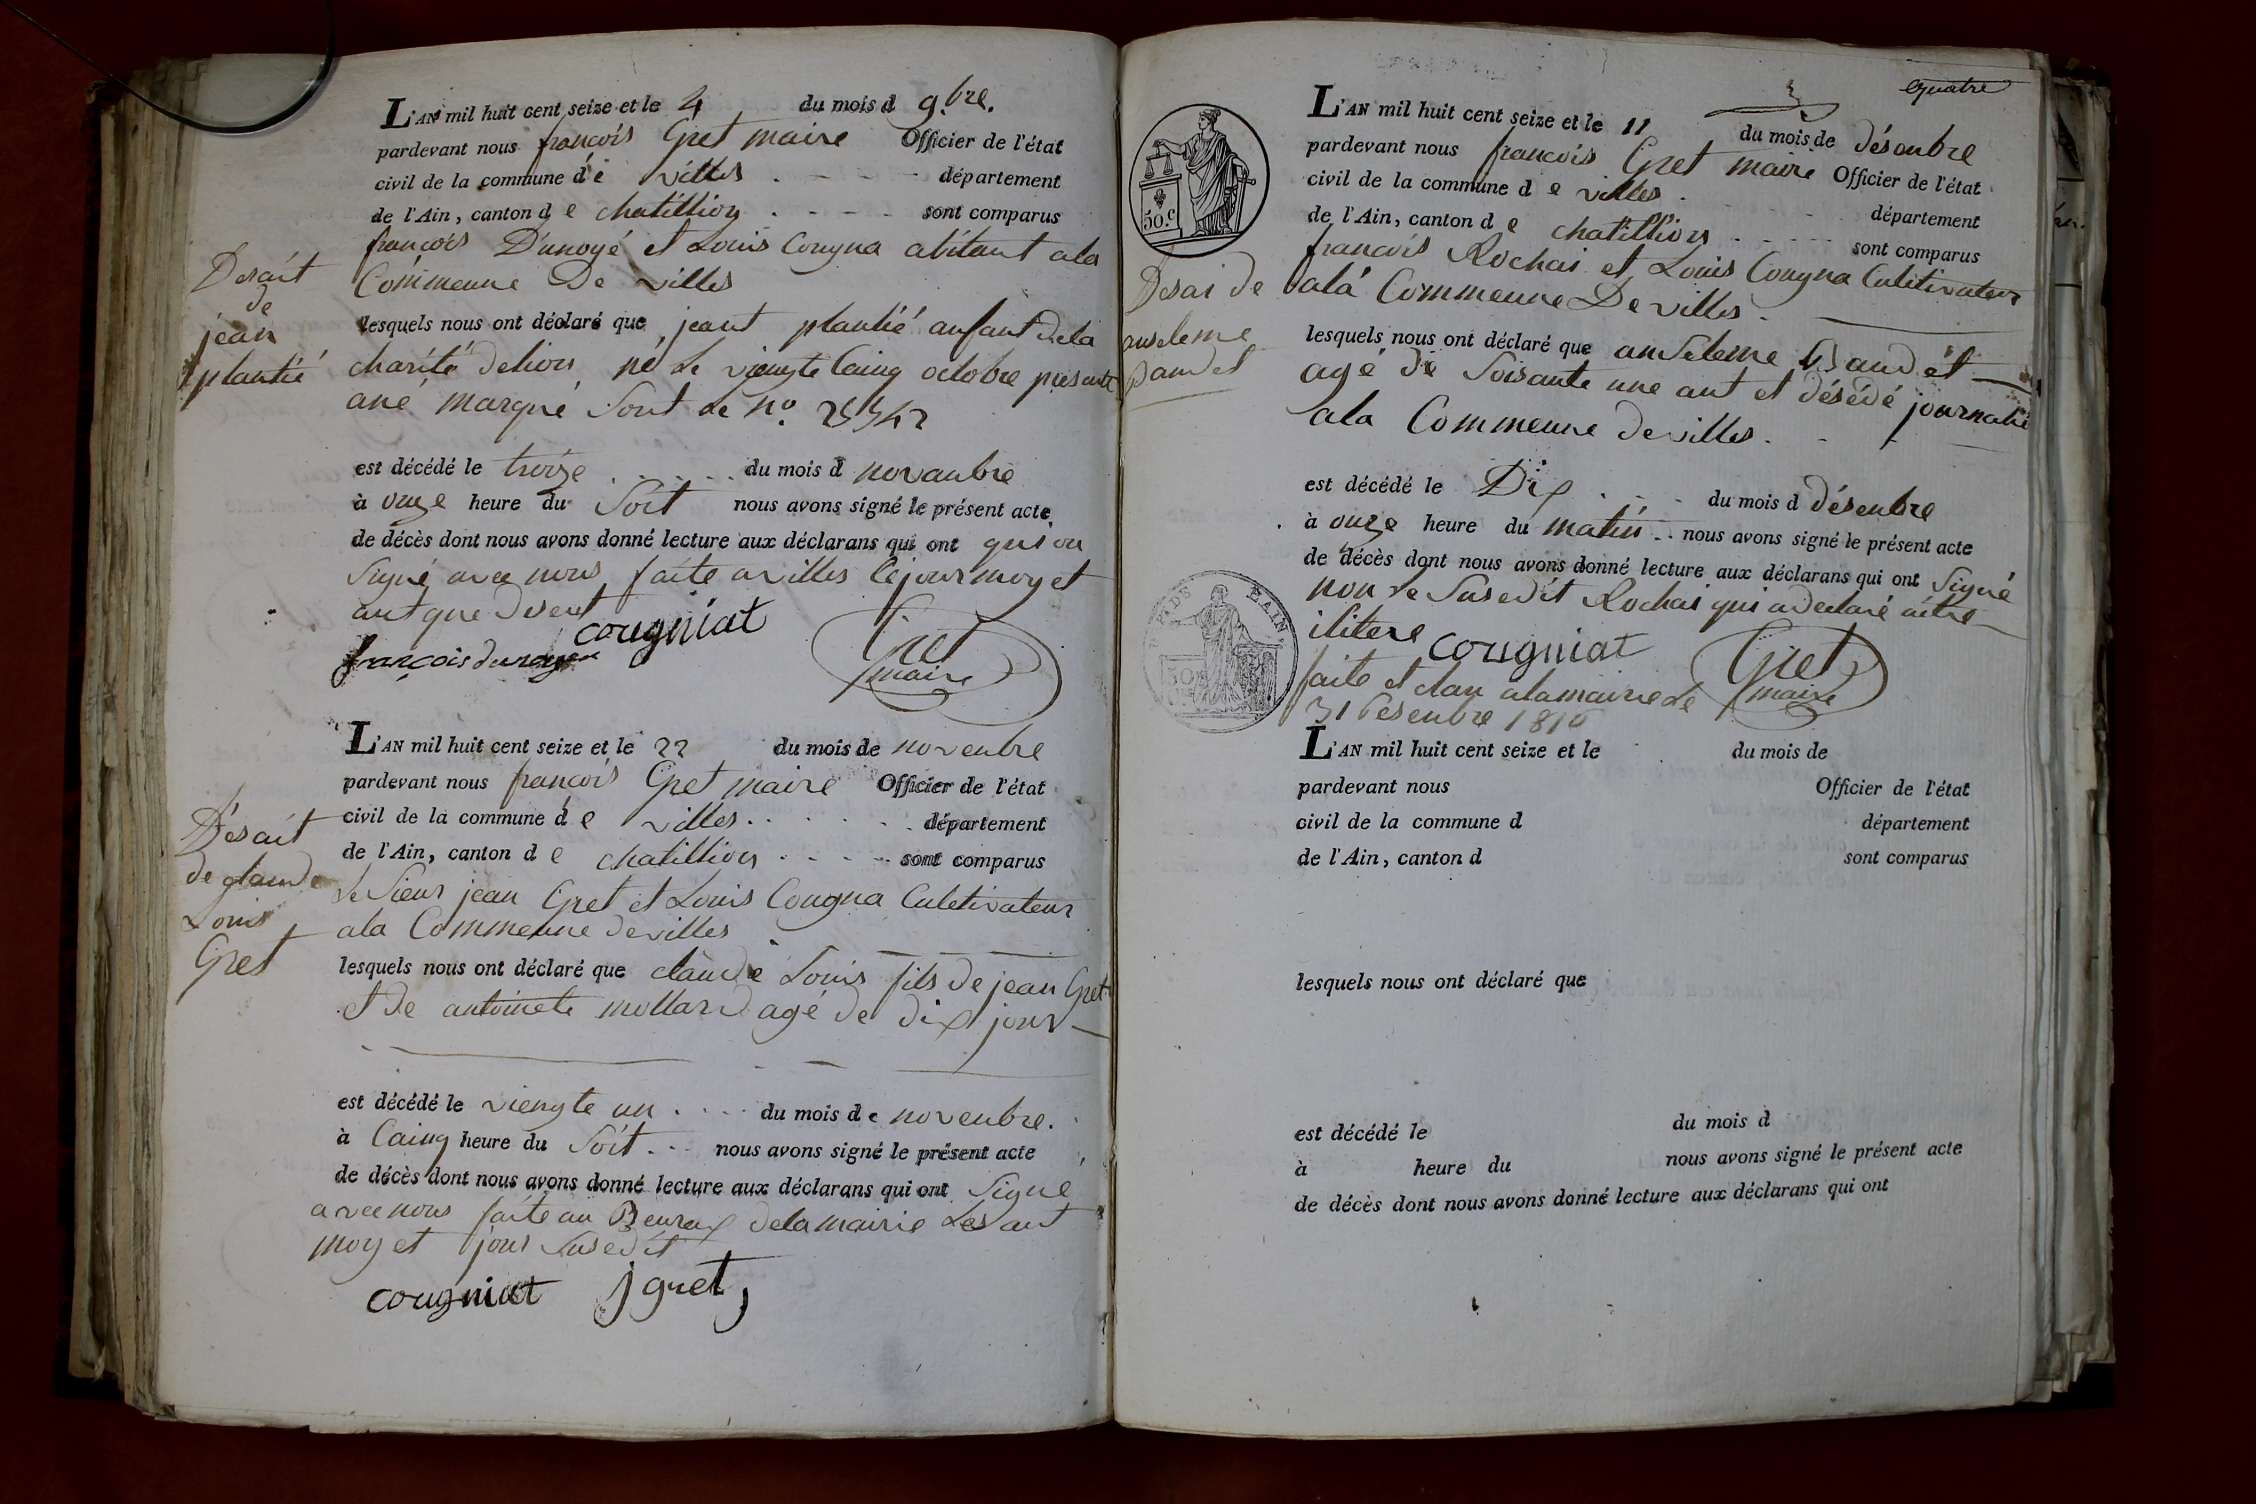 L'AN mil huit cent seize et le 4 du mois d 9.bre.
pardevant nous françois Gret maire Officier de l'état
civil de la commune de villes département
de l'Ain, canton de chatillion sont comparus
françois Dunoyé et Louis Cougna abitant a la
Commeune De villes
Desait
de
jean
plantié
lesquels nous ont déclaré que jeant plantié anfant de la
charité de lion né Le viengte Cainq octobre présente
ané marqué Sont Le No.
est décédé le troize du mois d novanbre
à onze heure du Soit nous avons signé le présent acte
de décès dont nous avons donné lecture aux déclarans qui ont qui on
Signé avec nous faite a villes le jour moy et
ant que desent
cougniat
françois dunoyer
Gret
maire
L'AN mil huit cent seize et le 22 du mois de novenbre
pardevant nous françois Gret maire Officier de l'état
civil de la commune de villes département
de l'Ain, canton de chatillion sont comparus
Desait
de glaude
Louis
Gret
Le Sieur jean Gret et Louis Cougna Culetivateur
a la Commeune de villes
lesquels nous ont déclaré que claude Louis fils de jean Gret
et de antoinete mollard agé de dix jour
est décédé le viengte un du mois de novenbre.
à Cainq heure du Soit nous avons signé le présent acte
de décès dont nous avons donné lecture aux déclarans qui ont Signé
avec nous faite au Beuraux de la mairie Les ant
moy et jour Susedit
cougniat j gret
quatre
L'AN mil huit cent seize et le 11 du mois de désenbre
pardevant nous françois Gret maire Officier de l'état
civil de la commune de villes département
de l'Ain, canton de chatillion sont comparus
50.c
françois Rochai et Louis Cougna Culetivateur
a la Commeune De villes
Desai de
anseleme
Baudet
lesquels nous ont déclaré que anseleme Baudét
agé de Soisante une ant et désédé journalié
a la Commeune de villes.
est décédé le Dix du mois d désenbre
à onze heure du matin nous avons signé le présent acte
de décès dont nous avons donné lecture aux déclarans qui ont Signé
non Le Susedit Rochai qui a declaré aitre
ilitere
cougniat
Gret
maire
faite et clau a la mairie Le
31 Desenbre 1816
L'AN mil huit cent seize et le du mois de
pardevant nous Officier de l'état
civil de la commune d département
de l'Ain, canton d sont comparus
lesquels nous ont déclaré que
est décédé le du mois d
à heure du nous avons signé le présent acte
de décès dont nous avons donné lecture aux déclarans qui ont